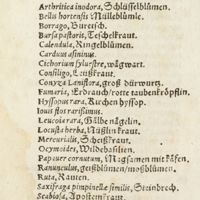 Arthritica inodora, Schlüsselblumen.
Bellis hortensis Mülleblümle.
Borrago, Buretsch.
Bursa pastoris, Teschelkraut.
Calendula, Ringelblumen.
Carduus asininus.
Cichorium syluestre, wägwart.
Consiligo, Leußkraut.
Conyza Lenistera, groß dürrwurtz.
Fumaria, Erdrauch/rotte taubenkröpflin.
Hyssopus rara, Kirchen hyssop.
Iouis flos rarissimus.
Leucoia rara, Gälbe nägelin.
Locusta herba, Nüßlin kraut.
Mercurialis, Scheißkraut.
Ocymoides, Wildebasilien.
Papauer cornutum, Magsamen mit käfen.
Ranunculus, geißblumen/moßblumen.
Ruta, Rauten.
Saxifraga pimpinellæ similis, Steinbrech.
Scabiosa, Apostemkraut.